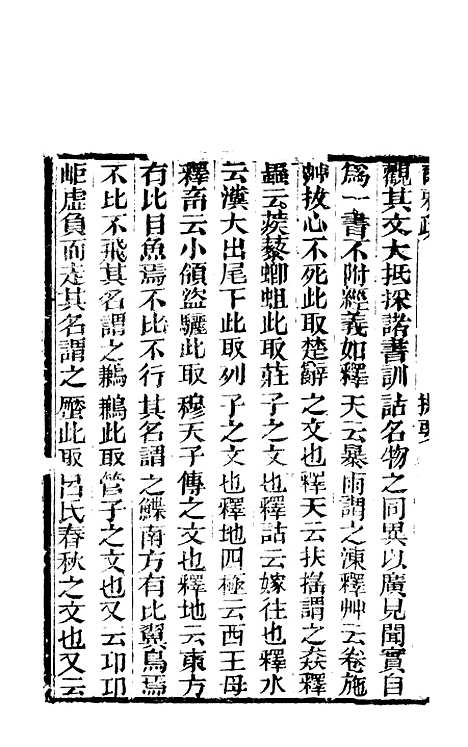 爾雅疏　提要
觀其文大抵採諸書訓詁名物之同異以廣見聞實自
爲一書不附經義如釋天云暴雨謂之涷釋艸云卷施
艸拔心不死此取楚辭之文也釋天云扶搖謂之猋釋
蟲云蒺藜蝍蛆此取莊子之文也釋詁云嫁往也釋水
云漢大出尾下此取列子之文也釋地四極云西王母
釋畜云小領盜驪此取穆天子傳之文也釋地云東方
有比目魚焉不比不行其名謂之鰈南方有比翼鳥焉
不比不飛其名謂之鶼鶼此取管子之文也又云邛邛
岠虛負而走其名謂之蹷此取呂氏春秋之文也又云